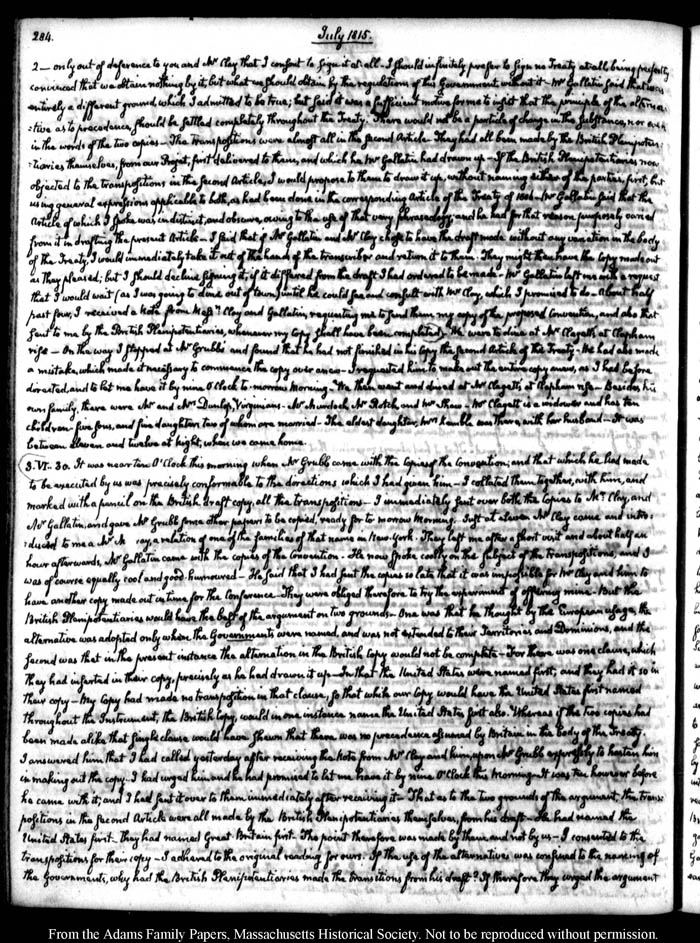 284.
July 1815.
2 — only out of deference to you and Mr Clay that I consent to sign it at all. I should infinitely prefer to sign no Treaty at all, being perfectly
convinced that we obtain nothing by it, but what we should obtain by the regulations of this Government without it — Mr Gallatin said that was
entirely a different ground, which I admitted to be true; but said it was a sufficient motive for me to insist that the principle of the alterna=
=tive as to precedence, should be settled completely throughout the Treaty. There would not be a particle of change in the substance, nor even
in the words of the two copies — The transpositions were almost all in the second Article. They had all been made by the British Plenipoten=
=tiaries themselves, from our Projet, first delivered to them, and which he Mr Gallatin had drawn up — If the British Plenipotentiaries now
objected to the transpositions in the second Article, I would propose to them to draw it up, without naming either of the parties, first, but
using general expressions applicable to both, as had been done in the corresponding Article of the Treaty of Mr Gallatin said that the
Article of which I spoke was indistinct, and obscure, owing to the use of that very phraseology, and he had for that reason purposely varied
from it in drafting the present Article — I said that if Mr Gallatin and Mr Clay chose to have the draft made without any variation in the body
of the Treaty, I would immediately take it out of the hands of the transcriber and return it to them. They might then have the Copy made out
as they pleased; but I should decline signing it, if it differed from the draft I had ordered to be made — Mr Gallatin left me with a request
that I would wait (as I was going to dine out of town) until he could see and consult with Mr Clay, which I promised to do — About half
past four, I received a Note from Messrs Clay and Gallatin, requesting me to send them my copy of the proposed Convention, and also that
sent to me by the British Plenipotentiaries, whenever my Copy shall have been completed — We were to dine at Mr Clagett's at Clapham
rise — On the way I stopped at Mr Grubb's and found that he had not finished in his Copy the second Article of the Treaty. He had also made
a mistake, which made it necessary to commence the copy over anew — I requested him to make out the entire copy anew, as I had before
directed, and to let me have it by nine O'Clock to-morrow Morning — We then went and dined at Mr Clagett's, at Clapham rise — Besides his
own family, there were Mr and Mrs Dunlop, Virginians — Mr Murdoch, Mr Rotch, and Mr Shaw — Mr Clagett is a widower and has ten
children — five sons, and five daughters, two of whom are married — The eldest daughter, Mrs Kemble was there, with her husband — It was
between eleven and twelve at Night, when we came home.
3. VI. 30. It was near ten O'Clock this morning when Mr Grubb came with the Copies of the Convention; and that which he had made
to be executed by us was precisely conformable to the directions which I had given him — I collated them together, with him, and
marked with a pencil on the British draft copy, all the transpositions — I immediately sent over both the Copies to Mr Clay, and
Mr Gallatin, and gave Mr Grubb some other papers to be copied, ready for to morrow Morning. Just at eleven Mr Clay came and intro=
=duced to me a Mr a relation of one of the families of that name in New-York. They left me after a short visit and about half an
hour afterwards, Mr Gallatin came with the copies of the Convention — He now spoke coolly on the subject of the transpositions, and I
was of course equally cool and good-humoured — He said that I had sent the copies so late that it was impossible for Mr Clay and him to
have another copy made out in time for the Conference — They were obliged therefore to try the experiment of offering mine — But the
British Plenipotentiaries would have the best of the argument on two grounds — One was that he thought by the European usage, the
alternative was adopted only when the Governments were named, and was not extended to their Territories and Dominions, and the
second was that in the present instance the alternation in the British Copy would not be complete — For there was one clause, which
they had inserted in their copy, precisely as he had drawn it up — In that the United States were named first, and they had it so in
their copy — My Copy had made no transposition in that clause, so that while our Copy would have the United States first named
throughout the Instrument, the British Copy, would in one instance name the United States first also. Whereas if the two copies had
been made alike that single clause would have shewn that there was no precedence assumed by Britain in the body of the Treaty.
I answered him that I had called yesterday after receiving the Note from Mr Clay and him, upon Mr Grubb expressly to hasten him
in making out the copy. I had urged him and he had promised to let me have it by nine O'Clock this Morning. It was ten however before
he came with it, and I had sent it over to them immediately after receiving it — That as to the two grounds of the argument, the trans=
positions in the second Article were all made by the British Plenipotentiaries themselves, from his draft — He had named the
United States first. They had named Great Britain first. The point therefore was made by them, and not by us — I consented to the
transpositions for their copy — I adhered to the original reading for ours. If the use of the alternative was confined to the naming of
the Governments, why had the British Plenipotentiaries made the transitions from his draft? If therefore they urged the argument
From the Adams Family Papers, Massachusetts Historical Society. Not to be reproduced without permission.